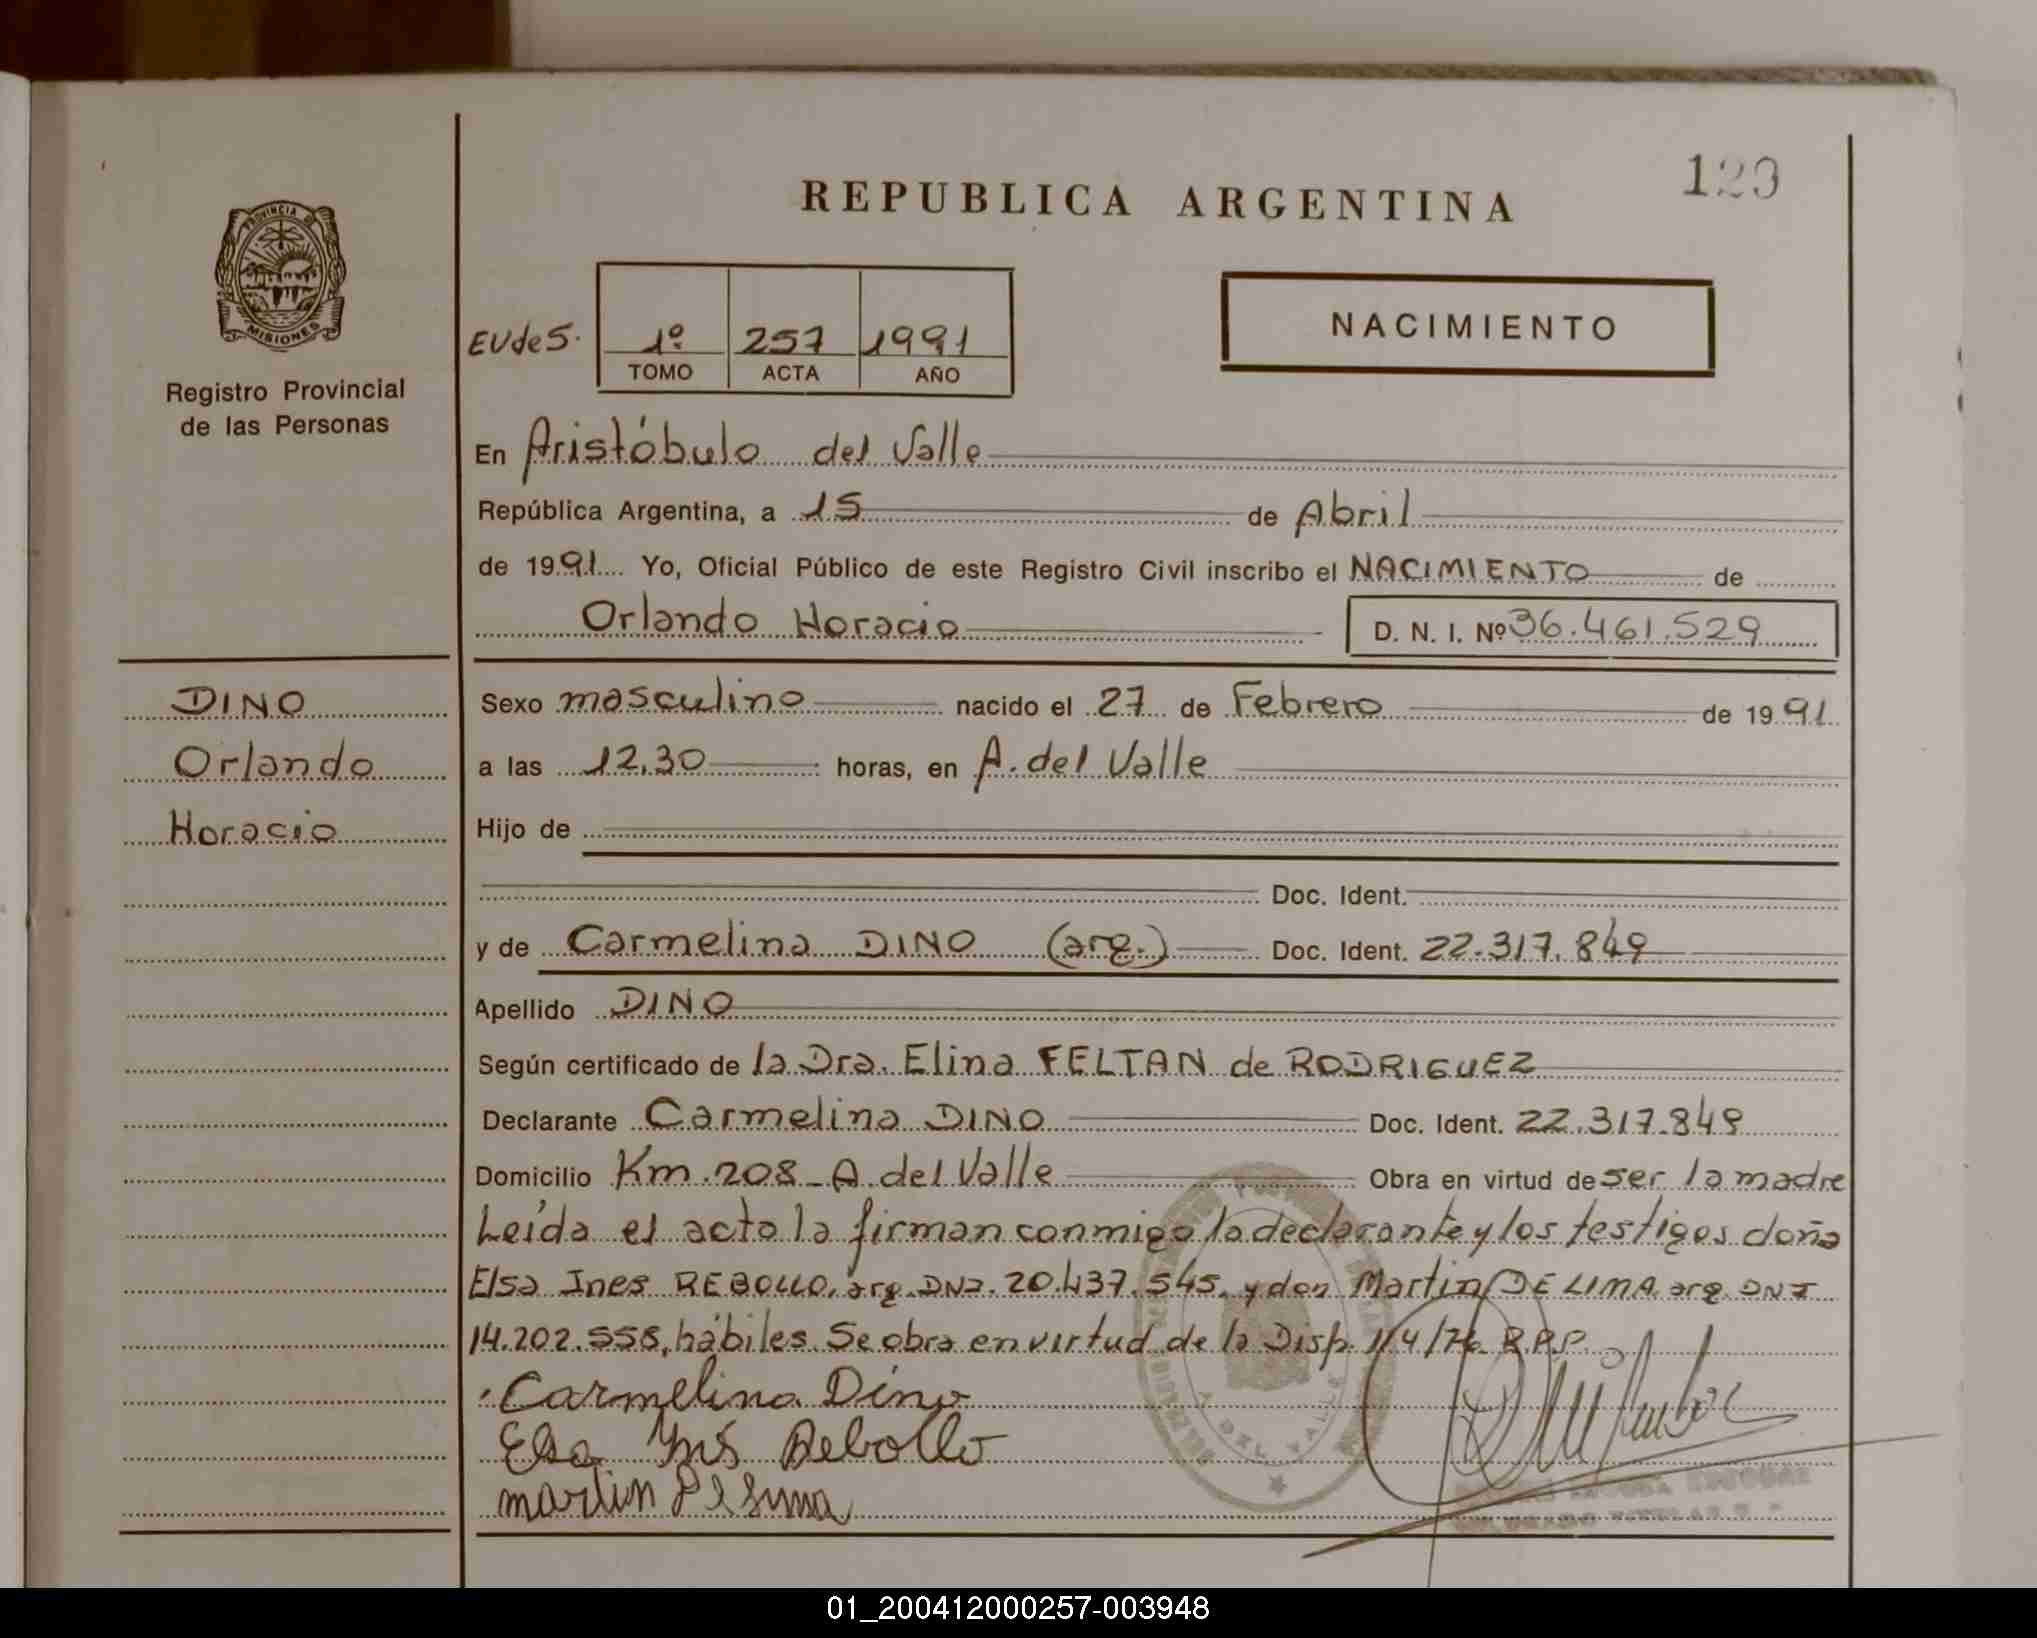 123
REPUBLICA ARGENTINA
PROVINCIA DE
MISIONES
Registro Provincial
de las Personas
EVdeS.
1º 257 1991
TOMO ACTA AÑO
NACIMIENTO
En Aristóbulo del Valle
República Argentina, a 15 de Abril
de 1991 Yo, Oficial Público de este Registro Civil inscribo el NACIMIENTO de
Orlando Horacio D. N. I. Nº 36.461.529
DINO
Orlando
Horacio
Sexo masculino nacido el 27 de Febrero de 1991
a las 12,30 horas, en A. del Valle
Hijo de
Doc. Ident.
y de Carmelina DINO (arg.) Doc. Ident. 22.317.849
Apellido DINO
Según certificado de la Dra. Elina FELTAN de RODRIGUEZ
Declarante Carmelina DINO Doc. Ident. 22.317.849
Domicilio Km. 208 - A. del Valle Obra en virtud de ser la madre
Leída el acto la firman conmigo la declarante y los testigos doña
Elsa Ines REBOLLO, arg. DNI. 20.437.545, y don Martin DE LIMA arg DNI
14.202.558, hábiles. Se obra en virtud de la Disp. 114/76 R.P.P.
Carmelina Dino
Elsa Ins Rebollo
martin
DEL VALLE
01_200412000257-003948